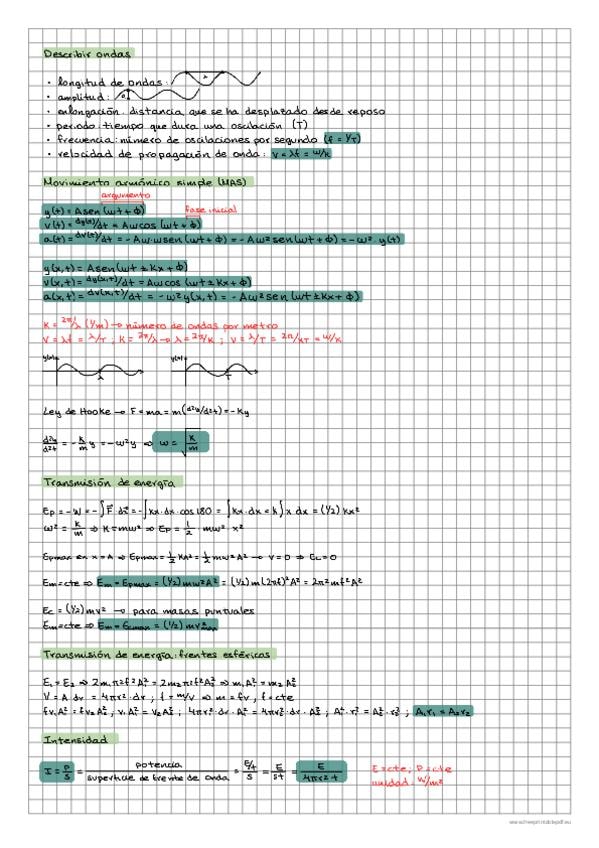 Describir ondas
• longitud de ondas: λ
• amplitud: A
• enlongación: distancia que se ha desplazado desde reposo
• periodo: tiempo que dura una oscilación (T)
• frecuencia: número de oscilaciones por segundo (f = 1/T)
• velocidad de propagación de onda: v = λf = ω/k
Movimiento armónico simple (MAS)
argumento
y(t) = A sen (ωt + ϕ) fase inicial
v(t) = dy(t)/dt = Aω cos (ωt + ϕ)
a(t) = dv(t)/dt = -Aω·ω sen (ωt + ϕ) = -Aω² sen (ωt + ϕ) = -ω² · y(t)
y(x,t) = A sen (ωt ± kx + ϕ)
v(x,t) = dy(x,t)/dt = Aω cos (ωt ± kx + ϕ)
a(x,t) = dv(x,t)/dt = -ω² y(x,t) = -Aω² sen (ωt ± kx + ϕ)
K = 2π/λ (1/m) → número de ondas por metro
V = λf = λ/T ; K = 2π/λ → λ = 2π/K ; V = λ/T = 2π/KT = ω/K
y(x) λ y(t) T
Ley de Hooke → F = ma = m(d²y/d²t) = -Ky
d²y/d²t = -K/m y = -ω²y ⇒ ω = √K/m
Transmisión de energía
Ep = -W = -∫F⃗·dx⃗ = -∫kx·dx·cos 180 = ∫kx·dx = k∫x dx = (1/2) kx²
ω² = K/m ⇒ K = mω² ⇒ Ep = 1/2 · mω² · x²
Epmax en x = A ⇒ Epmax = 1/2 KA² = 1/2 mω²A² → v = 0 ⇒ Ec = 0
Em = cte ⇒ Em = Epmax = (1/2) mω²A² = (1/2) m (2πf)² A² = 2π² m f² A²
Ec = (1/2) mv² → para masas puntuales
Em = cte ⇒ Em = Ecmax = (1/2) mv²max
Transmisión de energía: frentes esféricos
E₁ = E₂ ⇒ 2m₁π²f²A₁² = 2m₂π²f²A₂² ⇒ m₁A₁² = m₂A₂²
V = A dr = 4πr² · dr ; ρ = m/V ⇒ m = ρV, ρ = cte
ρV₁A₁² = ρV₂A₂² ; V₁A₁² = V₂A₂² ; 4πr₁² · dr · A₁² = 4πr₂² · dr · A₂² ; A₁² · r₁² = A₂² · r₂² ; A₁r₁ = A₂r₂
Intensidad
I = P/S = potencia/superficie de frente de onda = E/t/S = E/St = E/4πr²t E = cte, P = cte
unidad: W/m²